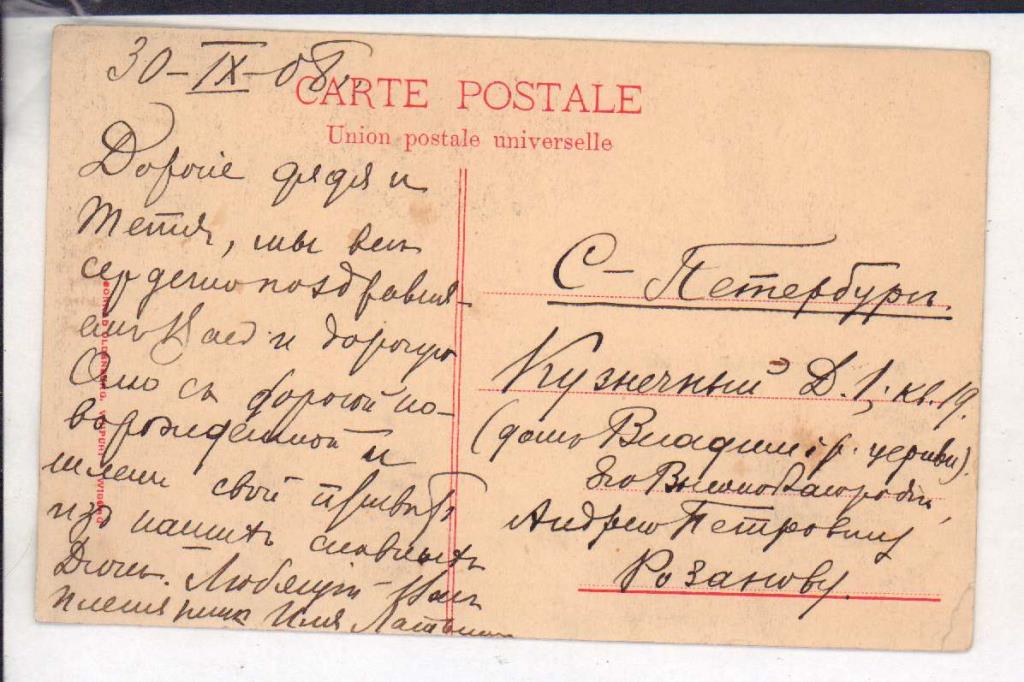 30-IX-08 г.
CARTE POSTALE
Union postale universelle
Дорогіе дядя и
тетя, мы всѣ
сердечно поздравля-
емъ Васъ и дорогую
Олю съ дорогой но-
ворожденной и
шлемъ свой привѣтъ
изъ нашихъ славныхъ
Дюнъ. Любящій Васъ
племянникъ Илья
С-Петербургъ.
Кузнечный Д. 1, кв. 19.
(домъ Владимір. церкви).
Его Высокоблагородію,
Андрею Петровичу
Розанову.